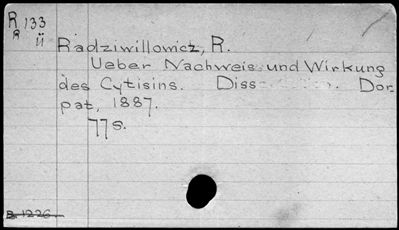 R 133
R ü
Radziwillowicz, R.
Ueber Nachweis und Wirkung
des Cytisins. Diss. Dor
pat, 1887.
77s.
B 1226